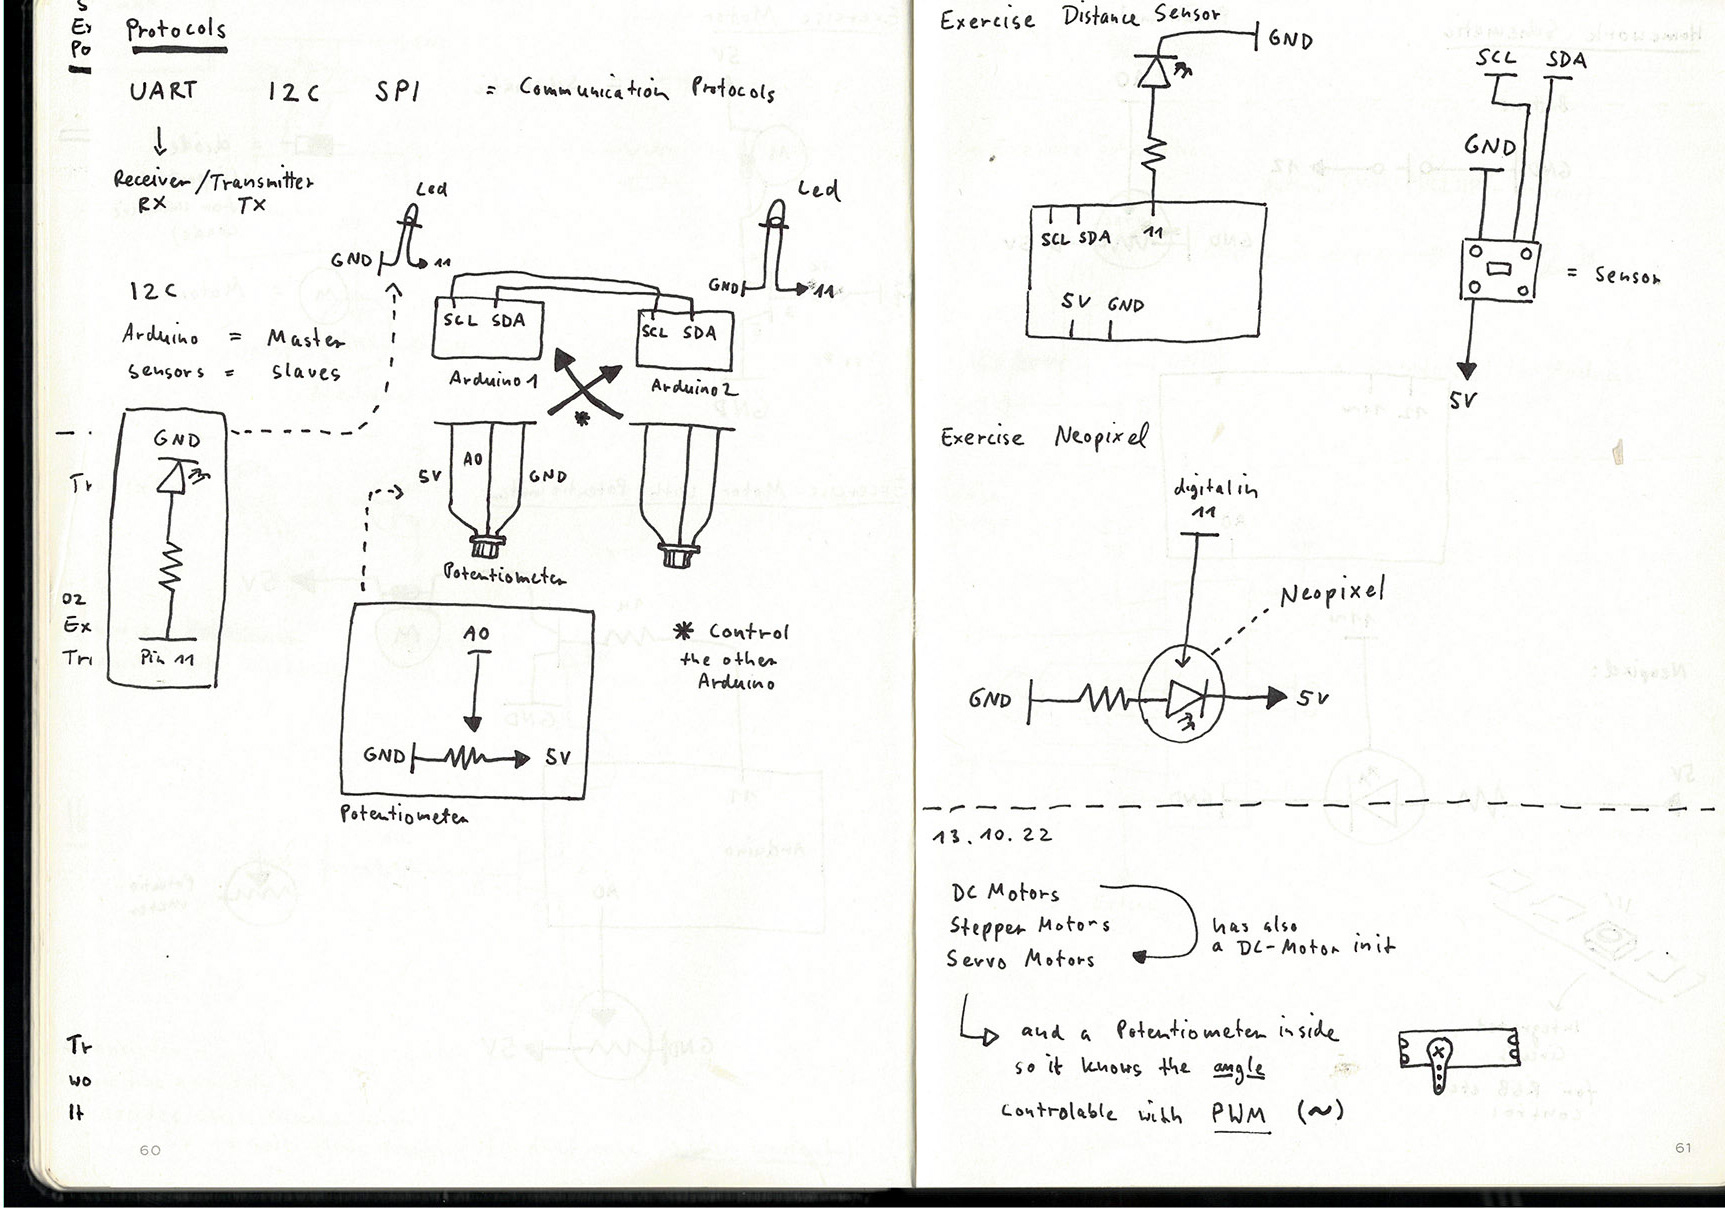 S
Ex
Po
Protocols
UART I2C SPI = Communication Protocols
Receiver/Transmitter
RX TX
Led
GND 11
Led
GND 11
I2C
Arduino = Master
sensors = slaves
SCL SDA
Arduino 1
SCL SDA
Arduino 2
*
GND
Pin 11
5V A0 GND
Potentiometer
A0
GND 5V
Potentiometer
* Control
the other
Arduino
Tr
02
Ex
Tri
Tr
wo
It
60
Exercise Distance Sensor
GND
SCL SDA 11
5V GND
SCL SDA
GND
= sensor
5V
Exercise Neopixel
digital in
11
Neopixel
GND 5V
13.10.22
DC Motors
Stepper Motors
Servo Motors
has also
a DC-Motor init
and a Potentiometer inside
so it knows the angle
controlable with PWM (~)
61